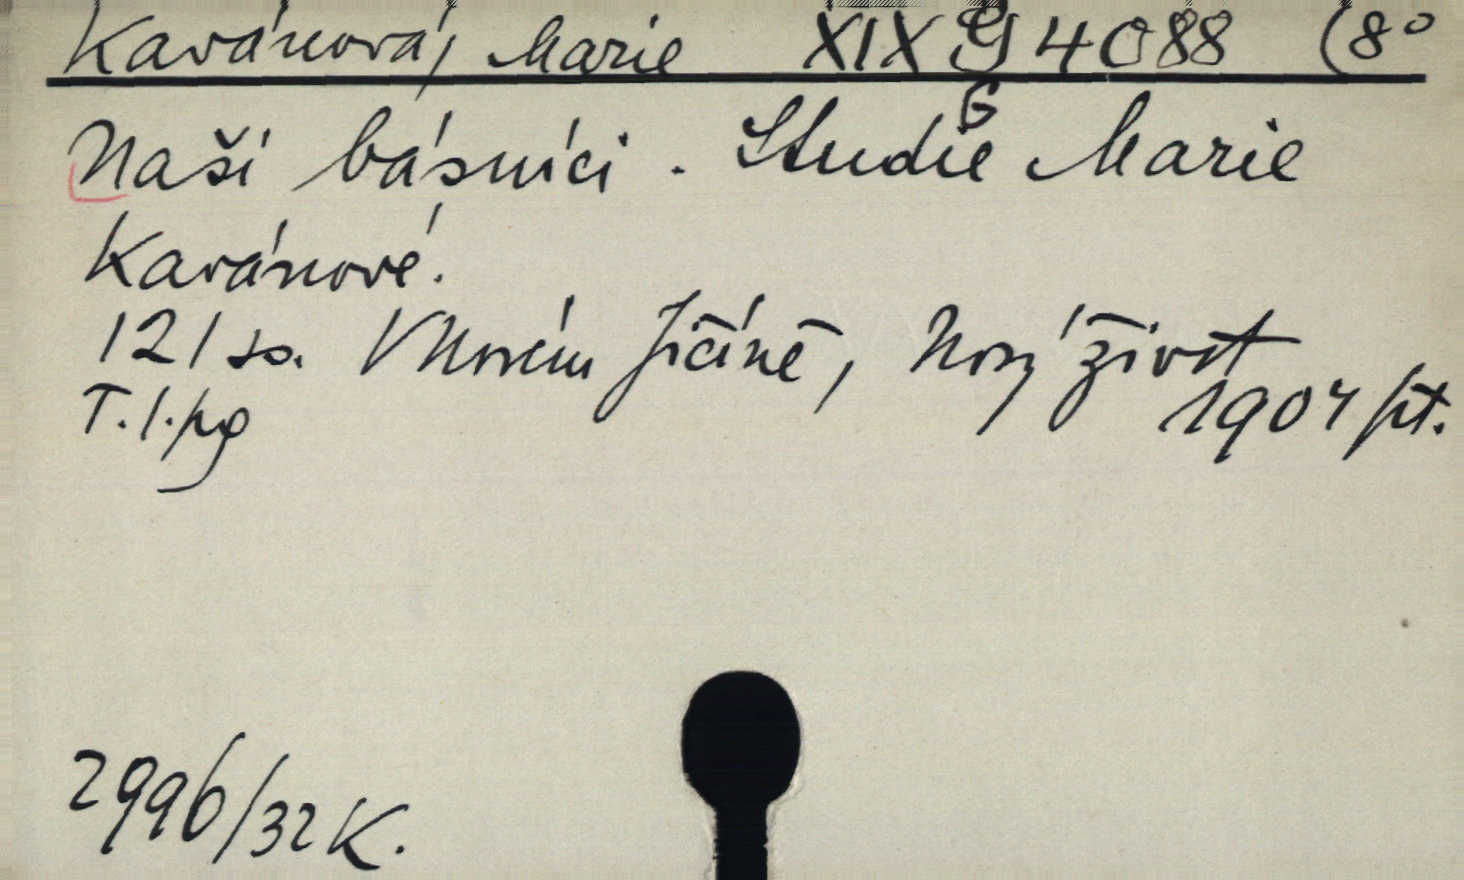 Kavánová, Marie XIX G 4088 (8°
Naši básníci. Studie Marie
Kavánové.
121 ss. V Novém Jičíně, Nový život
1907 pt.
T. I. pg
2996/32 K.